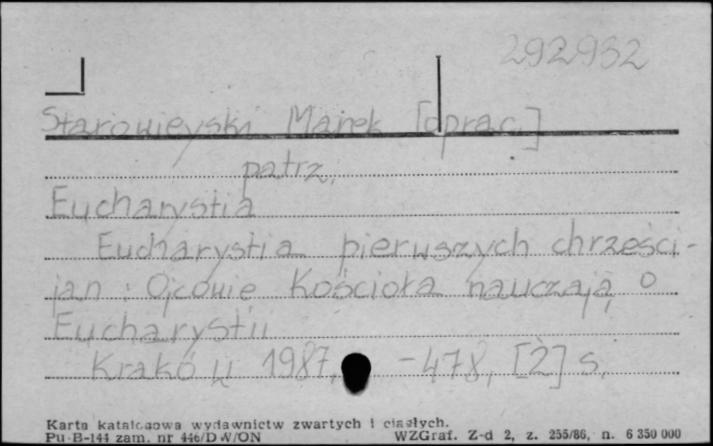 292932
Starowieyski Marek [oprac.]
patrz.
Eucharystia
Eucharystia pierwszych chrześci-
jan : Ojcowie Kościoła nauczają o
Eucharystii
Kraków 1987, -478, [2] s.
Karta katalogowa wydawnictw zwartych i ciągłych.
Pu-B-144 zam. nr 446/DW/ON WZGraf. Z-d 2, z. 255/86, n. 6 350 000